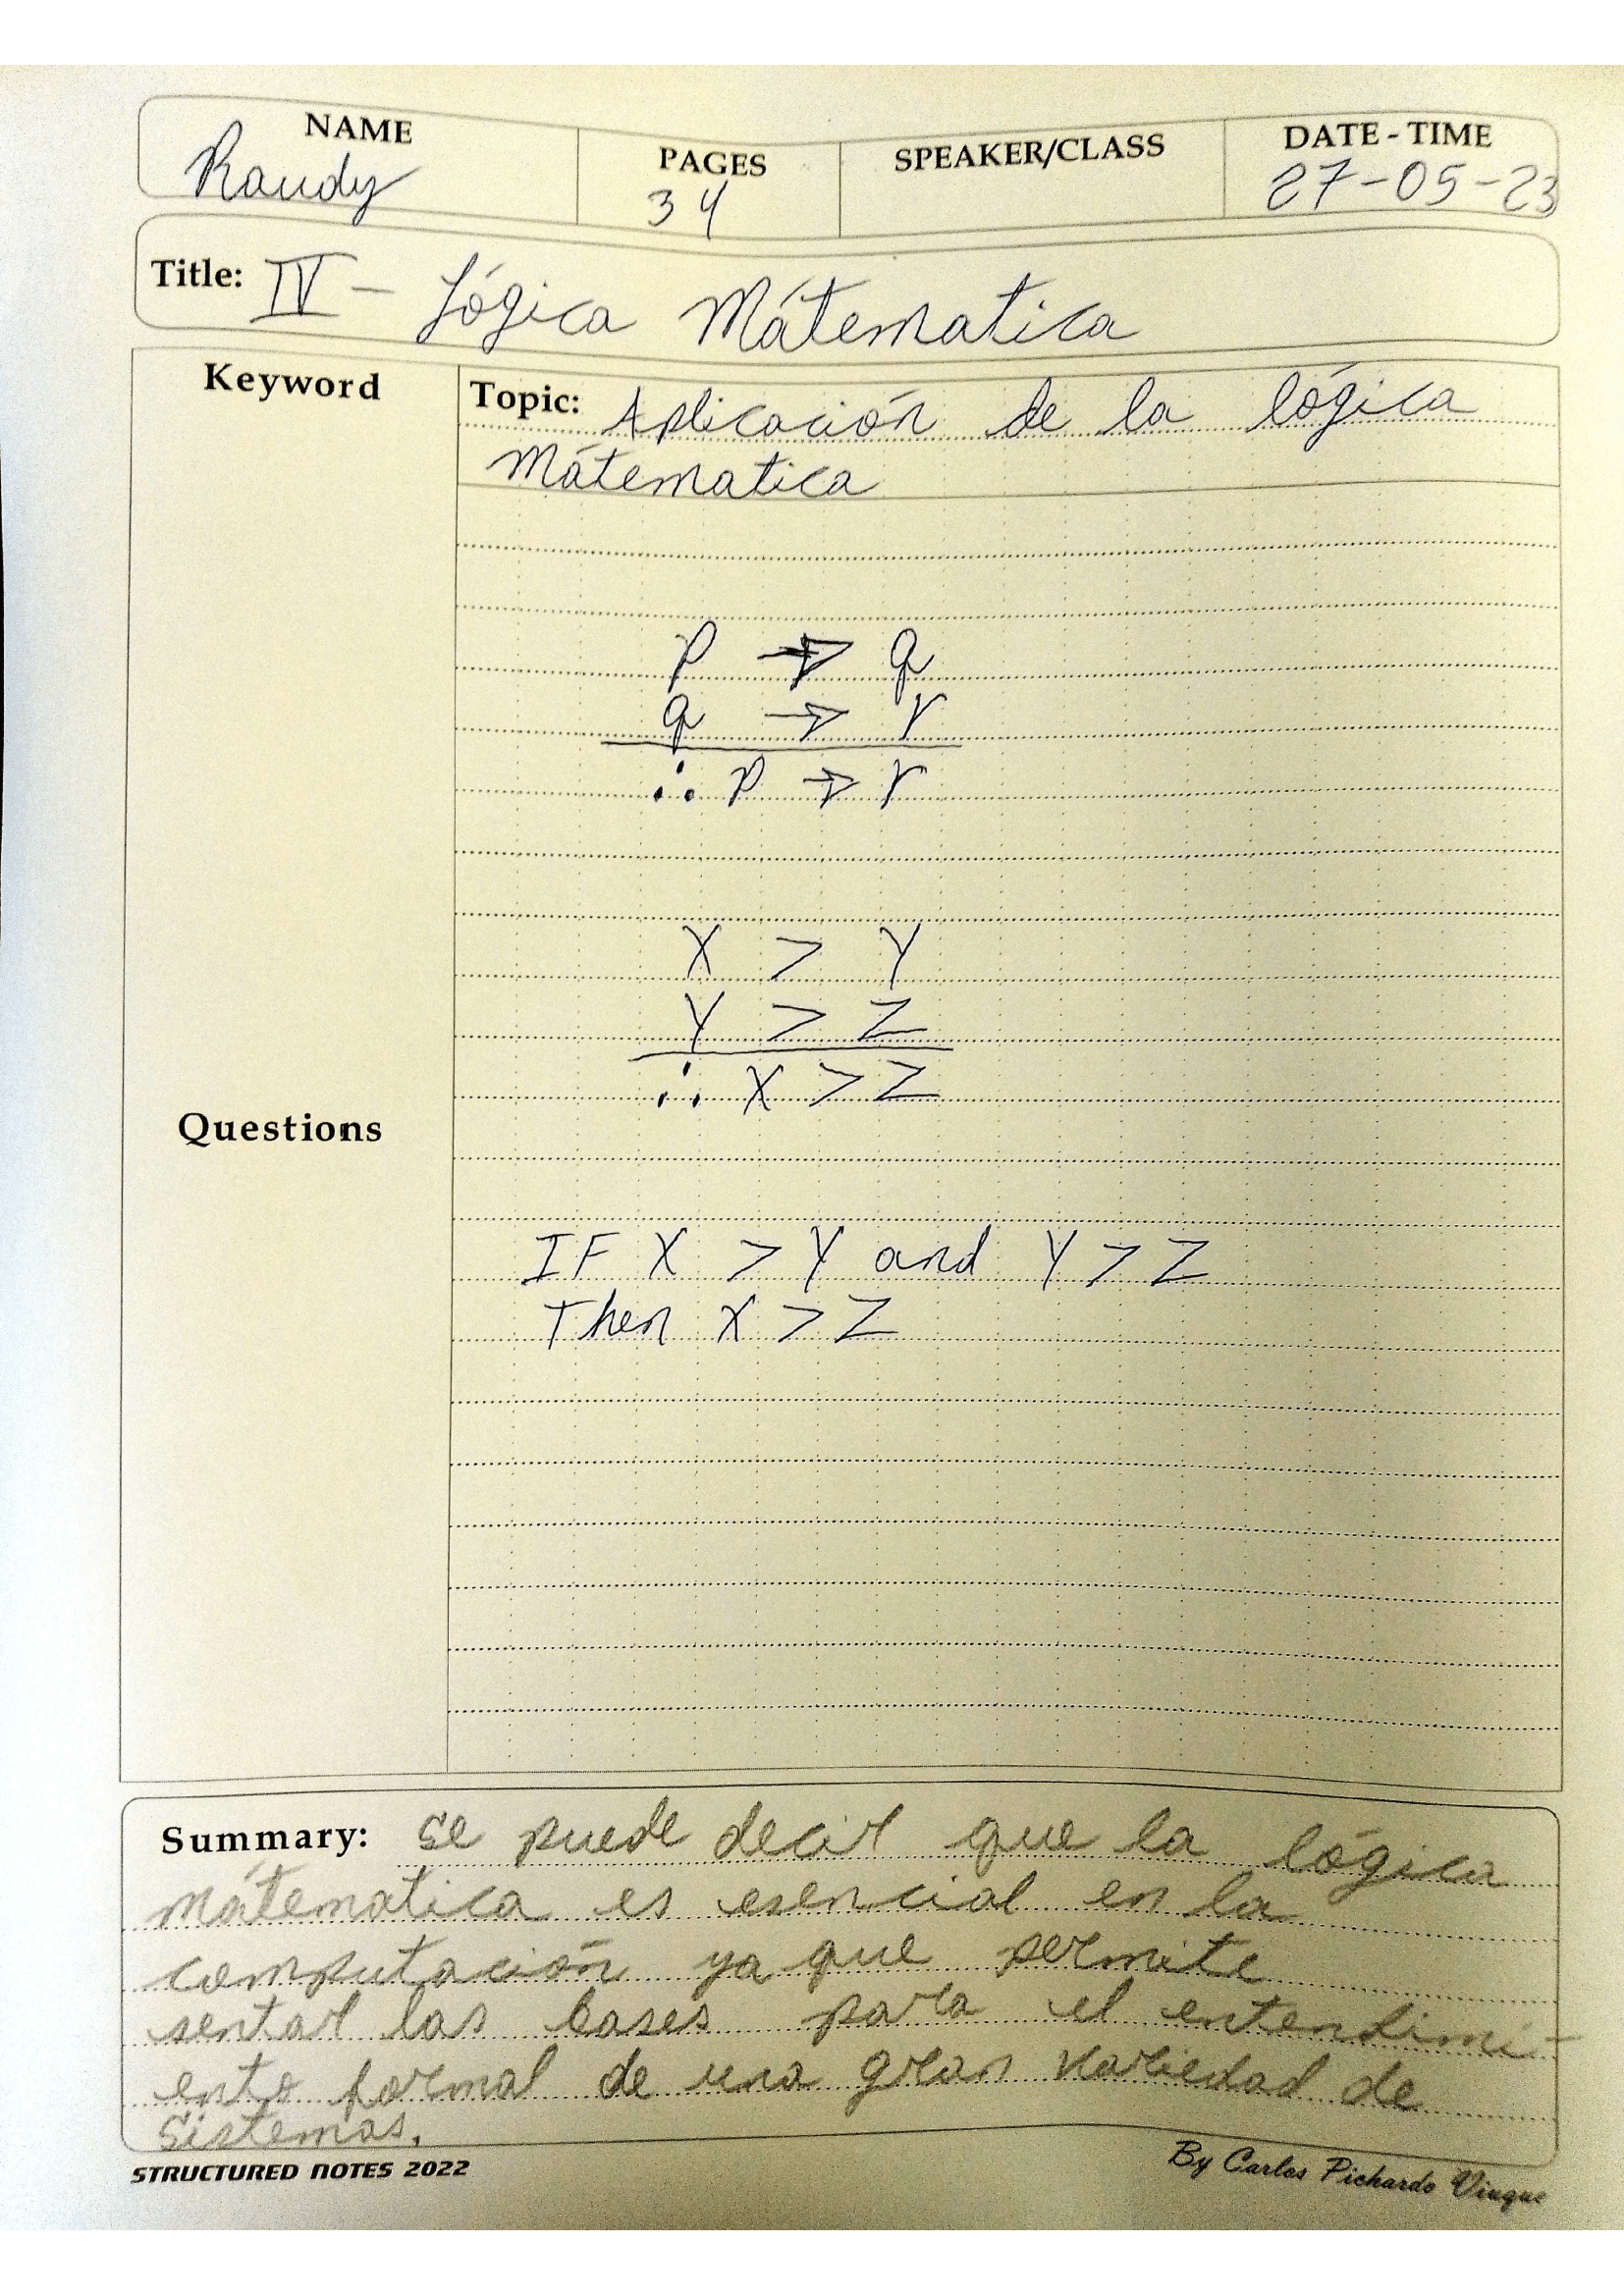 NAME PAGES SPEAKER/CLASS DATE - TIME
Raudy 34 27-05-23
Title: IV - Lógica Mátematica
Keyword
Topic: Aplicación de la lógica
Mátematica
p → q
q → r
∴ p → r
X > Y
Y > Z
∴ X > Z
Questions
IF X > Y and Y > Z
Then X > Z
Summary: se puede decir que la lógica
mátematica es esencial en la
computación ya que permite
sentar las bases para el entendimi-
ento formal de una gran variedad de
sistemas.
STRUCTURED NOTES 2022
By Carlos Pichardo Viuque